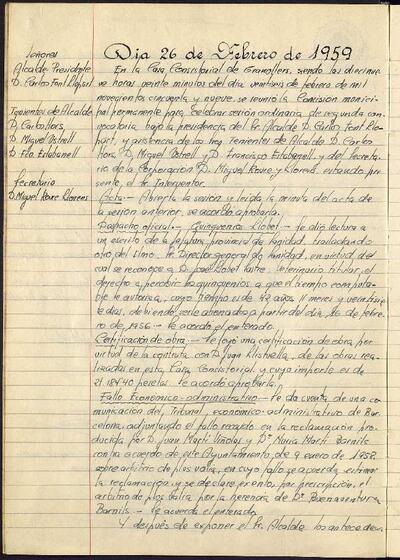 Señores
Alcalde Presidente
D. Carlos Font Llopart
Tenientes de Alcalde
D. Carlos Flors
D. Miguel Ostrell
D. Fco. Estabanell
Secretario
D. Miguel Roure Llorens
Día 26 de Febrero de 1959
En la Casa Consistorial de Granollers, siendo las diecinue-
ve horas veinte minutos del día veintiseis de febrero de mil
novecientos cincuenta y nueve, se reunió la Comisión munici-
pal permanente para celebrar sesión ordinaria de segunda con-
vocatoria bajo la presidencia del Sr. Alcalde D. Carlos Font Llo-
part, y asistencia de los tres tenientes de Alcalde D. Carlos
Flors, D. Miguel Ostrell y D. Francisco Estabanell y del Secreta-
rio de la Corporación D. Miguel Roure y Llorens, estando pre-
sente, el Sr. Interventor.
Acta.- Abierta la sesión y leída la minuta del acta de
la sesión anterior, se acordó aprobarla.
Despacho oficial.- Quinquenios Llobet.- Se dio lectura a
un escrito de la Jefatura provincial de Sanidad, trasladando
otro del Ilmo. Sr. Director general de Sanidad, en virtud del
cual se reconoce a D. José Llobet Veterinario titular, el
derecho a percibir los quinquenios a que el tiempo computa-
ble le autoriza, cuyo tiempo es de 42 años 11 meses y veintisie-
te días, debiendo serle abonados a partir del día 16 de febre-
ro de 1956.- Se acordó el enterado.
Certificación de obra.- Se leyó una certificación de obra por
virtud de la contrata con D. Juan de las obras rea-
lizadas en esta Casa Consistorial y cuyo importe es de
21.184'40 pesetas. Se acordó aprobarla.
Fallo Económico-administrativo.- Se da cuenta de una co-
municación del Tribunal económico-administrativo de Bar-
celona, adjuntando el fallo recaído en la reclamación pro-
ducida por D. Juan Martí Viñolas y Dª Nuria Martí Barnils
contra acuerdo de este Ayuntamiento, de 9 enero de 1958
sobre arbitrio de plus valía, en cuyo fallo se acuerda estimar
la reclamación, y se declare exentos, por prescripción, el
arbitrio de plus valía por la herencia de Dª Buenaventura
Barnils.- Se acuerda el enterado.
Y después de exponer el Sr. Alcalde los anteceden-